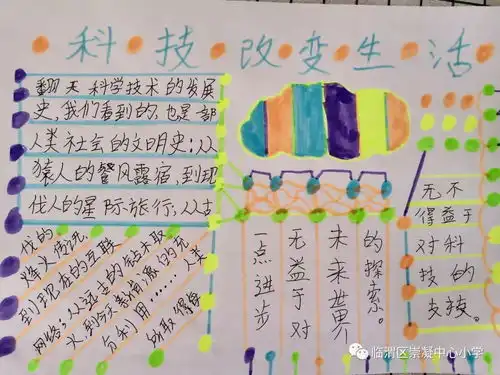 科技改变生活
翻天科学技术的发展
史,我们看到的,也是部
人类社会的文明史:从
猿人的餐风露宿,到现
代人的星际旅行,从古
代的
烽火
到现在的互联
网络;从过去的钻木取
火到今天
分利用……人类
所取得
一点进步
无益于对
未来世界
的探索。
无不
得益于
对科
技的
支技。
临渭区崇凝中心小学